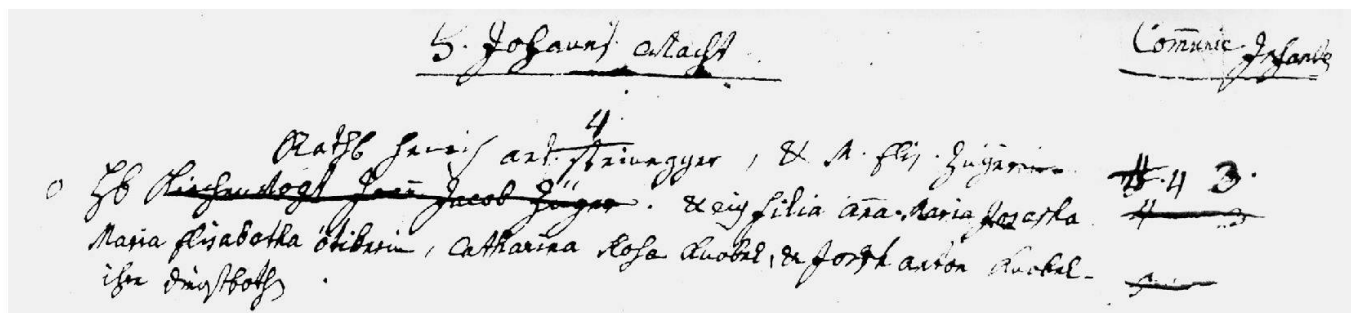 S. Johanns Macht
Com̄unic. Infantes
4
Rathh Henrich ant. Steinegger, & M. Elis. Zügerin 4 3.
Hh Kirchenvogt Joan̄ Jacob Züger. & eius filia an̄a Maria Josepha
Maria Elisabetha Stiberin, Catharina Rosa Knobel, & Joseph anton Knobel
ihre dienstboth